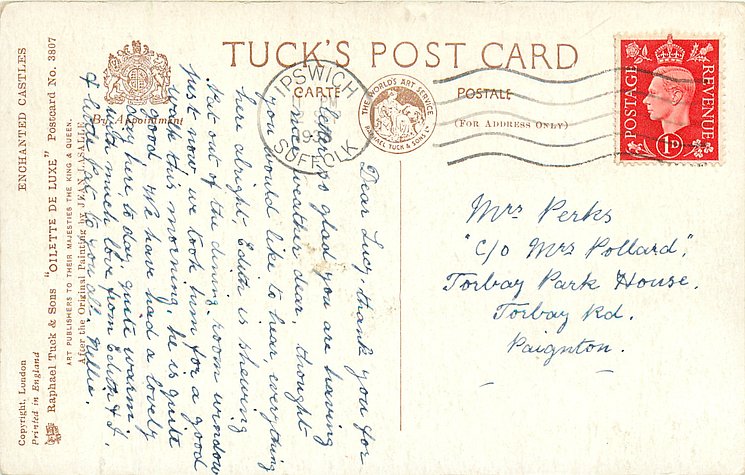 TUCK'S POST CARD
CARTE
POSTALE
(FOR ADDRESS ONLY)
By Appointment
THE WORLD'S ART SERVICE
RAPHAEL TUCK & SONS LTD
IPSWICH
193
SUFFOLK
POSTAGE
REVENUE
1D
ENCHANTED CASTLES
Raphael Tuck & Sons "OILETTE DE LUXE" Postcard No. 3807
ART PUBLISHERS TO THEIR MAJESTIES THE KING & QUEEN.
After the Original Painting by JEAN LASALLE
Copyright, London
Printed in England
Dear Lucy thank you for
letter, so glad you are having
nice weather dear, thought
you would like to hear, everything
here alright, Edith is shewing
Pat out of the dining room window
just now we took him for a good
walk this morning, he is quite
good. We have had a lovely
day here to day, quite warm,
much love from Edith & I.
& Pat to you all. Nellie.
Mrs Perks
"C/o Mrs Pollard",
Torbay Park House.
Torbay Rd.
Paignton.